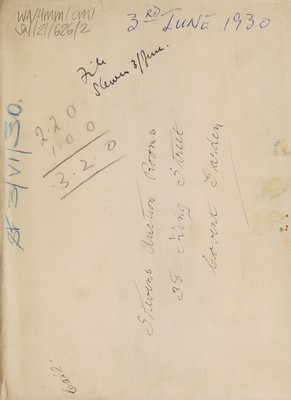 WA/HMM/CM/
Sal/21/626/2
3RD JUNE 1930
File
Stevens 3/June.
2.2.0
1.0.0
3.2.0
SF 3/VI/30.
Stevens Auction Rooms
38 King Street
Covent Garden